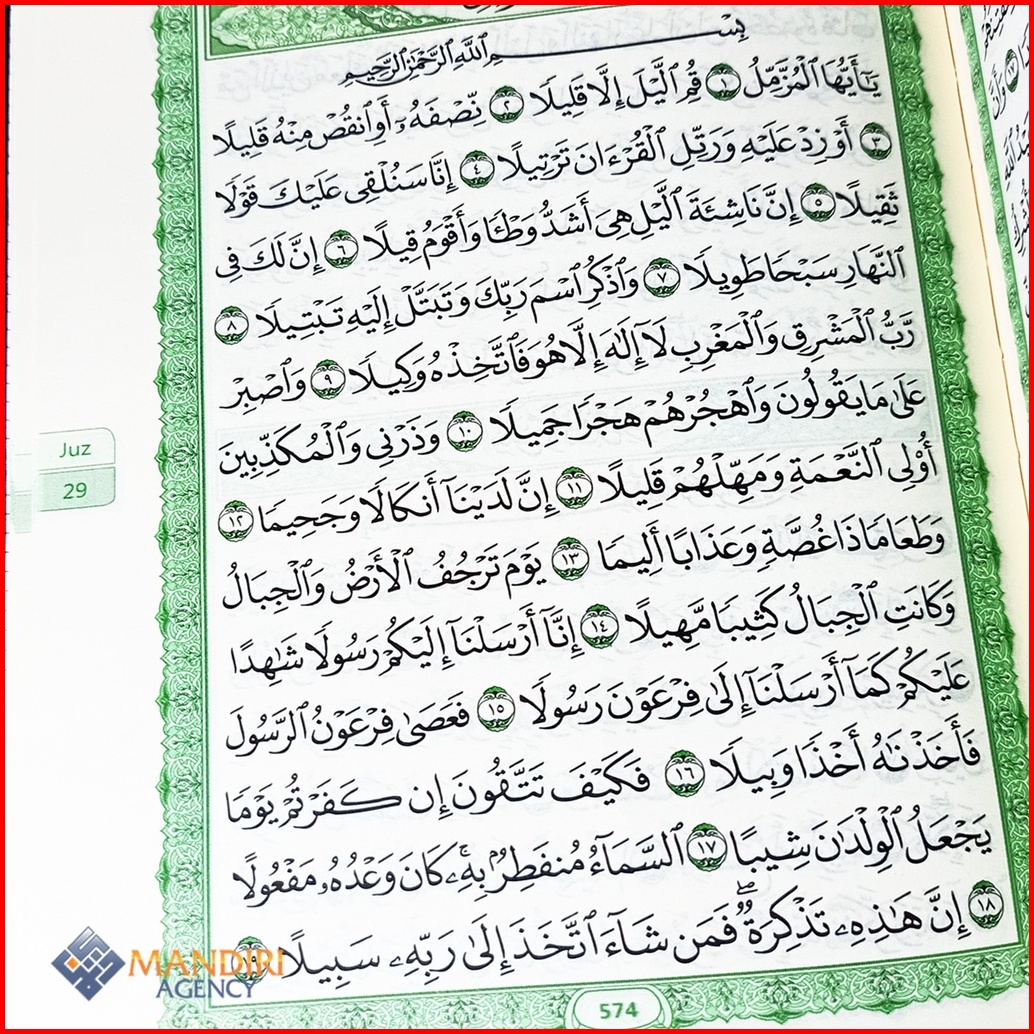 بِسْمِ ٱللَّهِ ٱلرَّحْمَٰنِ ٱلرَّحِيمِ
يَٰٓأَيُّهَا ٱلْمُزَّمِّلُ ١ قُمِ ٱلَّيْلَ إِلَّا قَلِيلًا ٢ نِّصْفَهُۥٓ أَوِ ٱنقُصْ مِنْهُ قَلِيلًا
٣ أَوْ زِدْ عَلَيْهِ وَرَتِّلِ ٱلْقُرْءَانَ تَرْتِيلًا ٤ إِنَّا سَنُلْقِى عَلَيْكَ قَوْلًا
ثَقِيلًا ٥ إِنَّ نَاشِئَةَ ٱلَّيْلِ هِىَ أَشَدُّ وَطْـًٔا وَأَقْوَمُ قِيلًا ٦ إِنَّ لَكَ فِى
ٱلنَّهَارِ سَبْحًا طَوِيلًا ٧ وَٱذْكُرِ ٱسْمَ رَبِّكَ وَتَبَتَّلْ إِلَيْهِ تَبْتِيلًا ٨
رَّبُّ ٱلْمَشْرِقِ وَٱلْمَغْرِبِ لَآ إِلَٰهَ إِلَّا هُوَ فَٱتَّخِذْهُ وَكِيلًا ٩ وَٱصْبِرْ
عَلَىٰ مَا يَقُولُونَ وَٱهْجُرْهُمْ هَجْرًا جَمِيلًا ١٠ وَذَرْنِى وَٱلْمُكَذِّبِينَ
أُو۟لِى ٱلنَّعْمَةِ وَمَهِّلْهُمْ قَلِيلًا ١١ إِنَّ لَدَيْنَآ أَنكَالًا وَجَحِيمًا ١٢
وَطَعَامًا ذَا غُصَّةٍ وَعَذَابًا أَلِيمًا ١٣ يَوْمَ تَرْجُفُ ٱلْأَرْضُ وَٱلْجِبَالُ
وَكَانَتِ ٱلْجِبَالُ كَثِيبًا مَّهِيلًا ١٤ إِنَّآ أَرْسَلْنَآ إِلَيْكُمْ رَسُولًا شَٰهِدًا
عَلَيْكُمْ كَمَآ أَرْسَلْنَآ إِلَىٰ فِرْعَوْنَ رَسُولًا ١٥ فَعَصَىٰ فِرْعَوْنُ ٱلرَّسُولَ
فَأَخَذْنَٰهُ أَخْذًا وَبِيلًا ١٦ فَكَيْفَ تَتَّقُونَ إِن كَفَرْتُمْ يَوْمًا
يَجْعَلُ ٱلْوِلْدَٰنَ شِيبًا ١٧ ٱلسَّمَآءُ مُنفَطِرٌۢ بِهِۦ ۚ كَانَ وَعْدُهُۥ مَفْعُولًا
١٨ إِنَّ هَٰذِهِۦ تَذْكِرَةٌ ۖ فَمَن شَآءَ ٱتَّخَذَ إِلَىٰ رَبِّهِۦ سَبِيلًا
574
Juz
29
MANDIRI
AGENCY